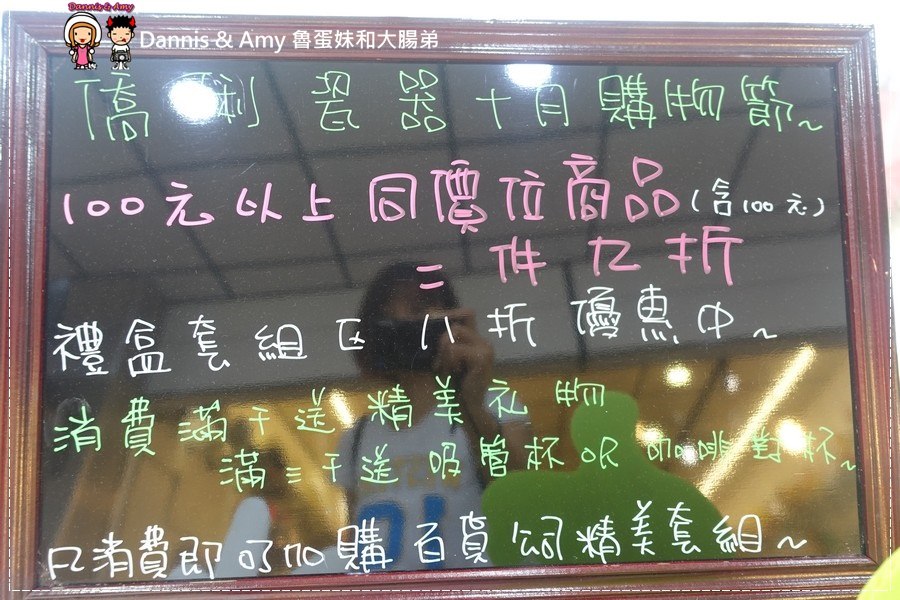 Dannis & Amy
Dannis & Amy 魯蛋妹和大腸弟
僑俐瓷器十月購物節~
100元以上同價位商品(含100元)
二件九折
禮盒套組区八折優惠中~
消費滿千送精美礼物
滿三千送吸管杯OR咖啡對杯~
只消費即可加購百貨公司精美套組~